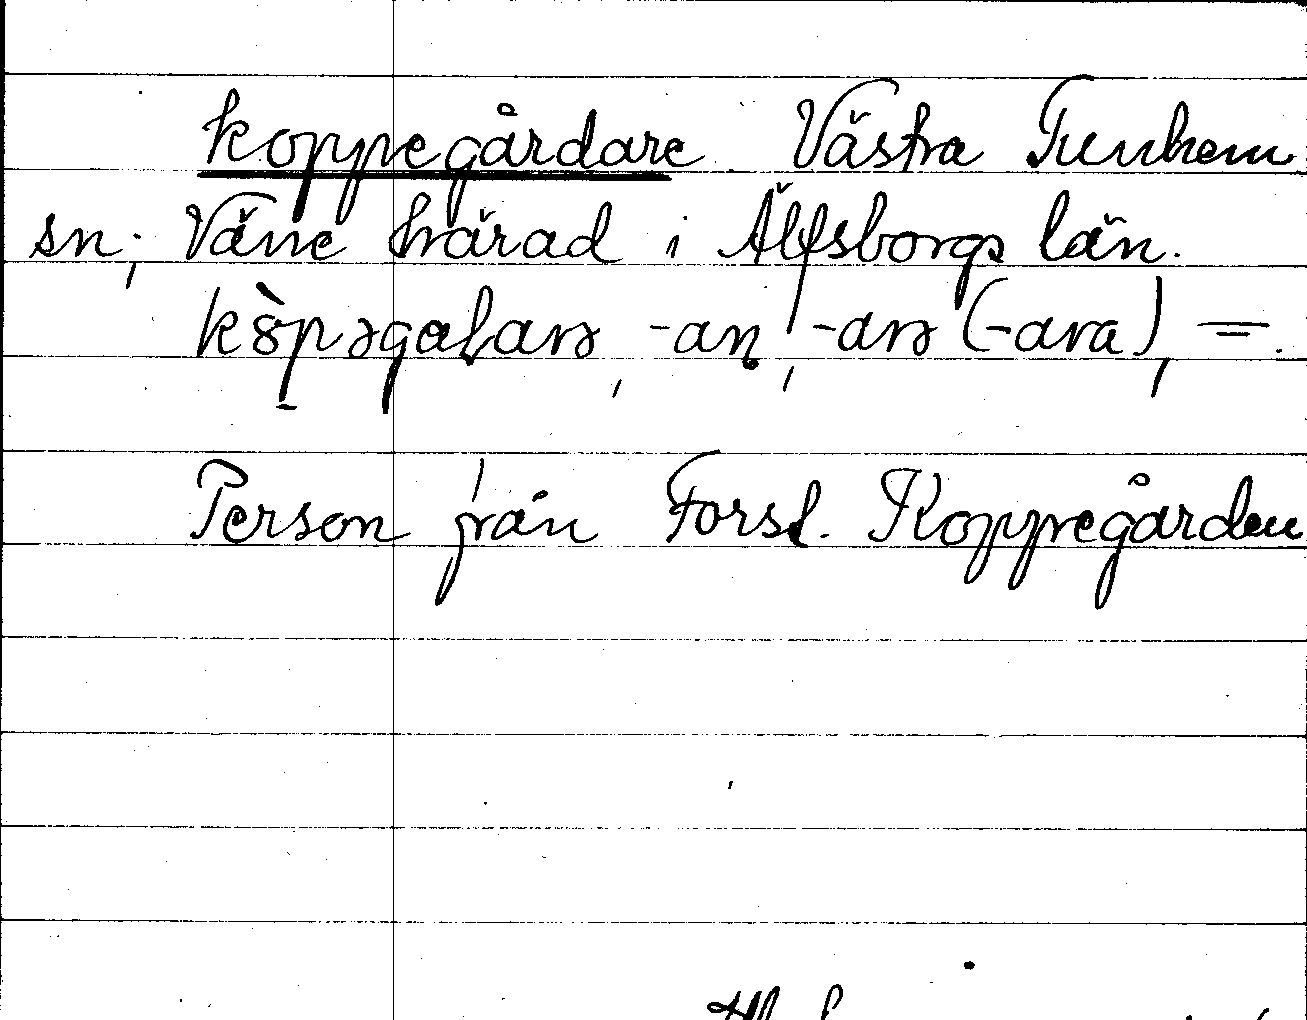 koppegårdare Västra Tunhem
sn; Väne härad i Älfsborgs län.
-an, -arə (-ara), =.
Person från Forsl. Koppegården